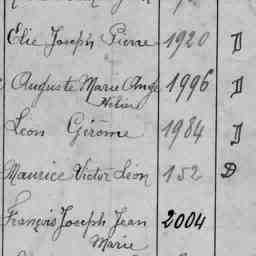 Elie Joseph Pierre 1920 D
Auguste Marie Ange 1996 D
Hélier
Léon Gérôme 1984 D
Maurice Victor Léon 152 D
François Joseph Jean 2004
Marie